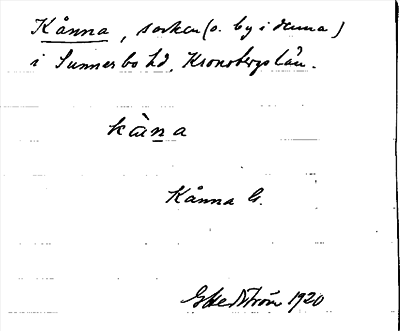 Kånna, socken (o. by i denna)
i Sunnerbo hd, Kronobergs län.
kàna
Kånna G.
G Hedström 1920